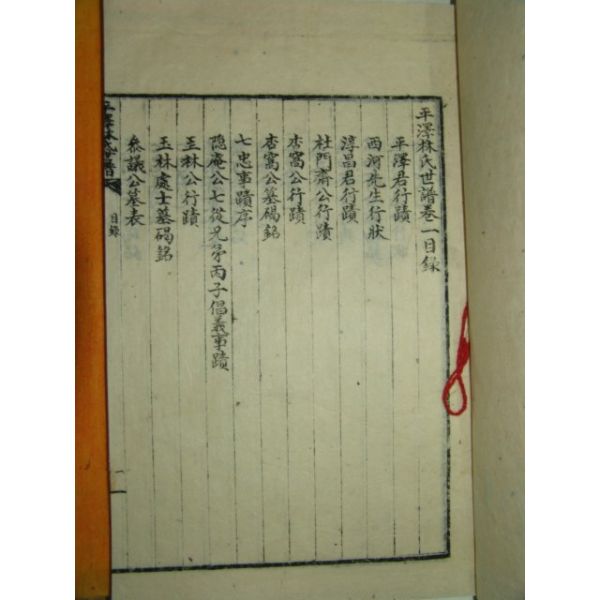 平澤林氏世譜卷一目錄
平澤君行蹟
西河先生行狀
淳昌君行蹟
杜門齋公行蹟
杏窩公行蹟
杏窩公墓碣銘
七忠事蹟序
隐庵公七從兄弟丙子倡義事蹟
玉林公行蹟
玉林處士墓碣銘
參議公墓表
平澤林氏世譜
目錄
一